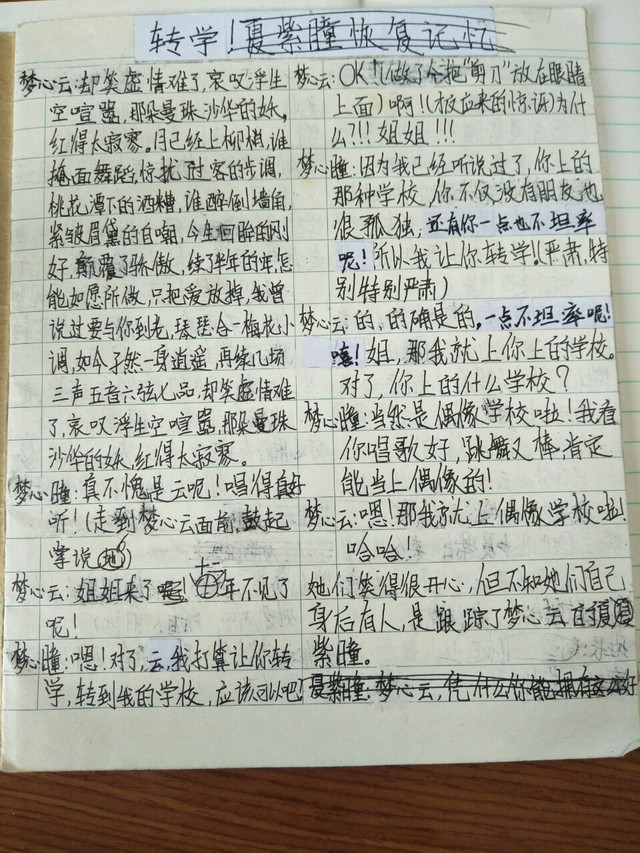 转学！夏紫瞳恢复记忆
梦心云：却笑虚情难了，哀叹浮生
空喧嚣，那朵曼珠沙华的妖，
红得太寂寥。月已经上柳梢，谁
掩面舞蹈，惊扰了过客的步调，
桃花潭下的酒糟，谁醉倒墙角，
紧皱眉黛的自嘲，今生回眸的刚
好，颠覆了骄傲，续了半年的年，怎
能如愿所做，只把爱放掉，我曾
说过要与你到老，琴瑟合一梅花小
调，如今孑然一身逍遥，再续几场
三声五音六弦七品，却笑虚情难
了，哀叹浮生空喧嚣，那朵曼珠
沙华的妖，红得太寂寥。
梦心瞳：真不愧是云呢！唱得真好
听！（走到梦心云面前，鼓起
掌说道）
梦心云：姐姐来了喔！年不见了
呢！
梦心瞳：嗯！对了，云，我打算让你转
学，转到我的学校，应该可以吧！
梦心云：OK！（做了个把“剪刀”放在眼睛
上面）啊！（反应来的惊讶）为什
么？！！！姐姐！！！
梦心瞳：因为我已经听说过了，你上的
那种学校，你不仅没有朋友也
很孤独，还有你一点也不坦率
呢！所以我让你转学！（严肃，特
别特别严肃）
梦心云：的，的确是的，一点不坦率呢！
嘻！姐，那我就上你上的学校。
对了，你上的什么学校？
梦心瞳：当然是偶像学校啦！我看
你唱歌好，跳舞又棒，肯定
能当上偶像的！
梦心云：嗯！那我就上偶像学校啦！
哈哈！
她们笑得很开心，但不知她们自己
身后有人，是跟踪了梦心云的夏
紫瞳。
夏紫瞳：梦心云，凭什么你能拥有这么好